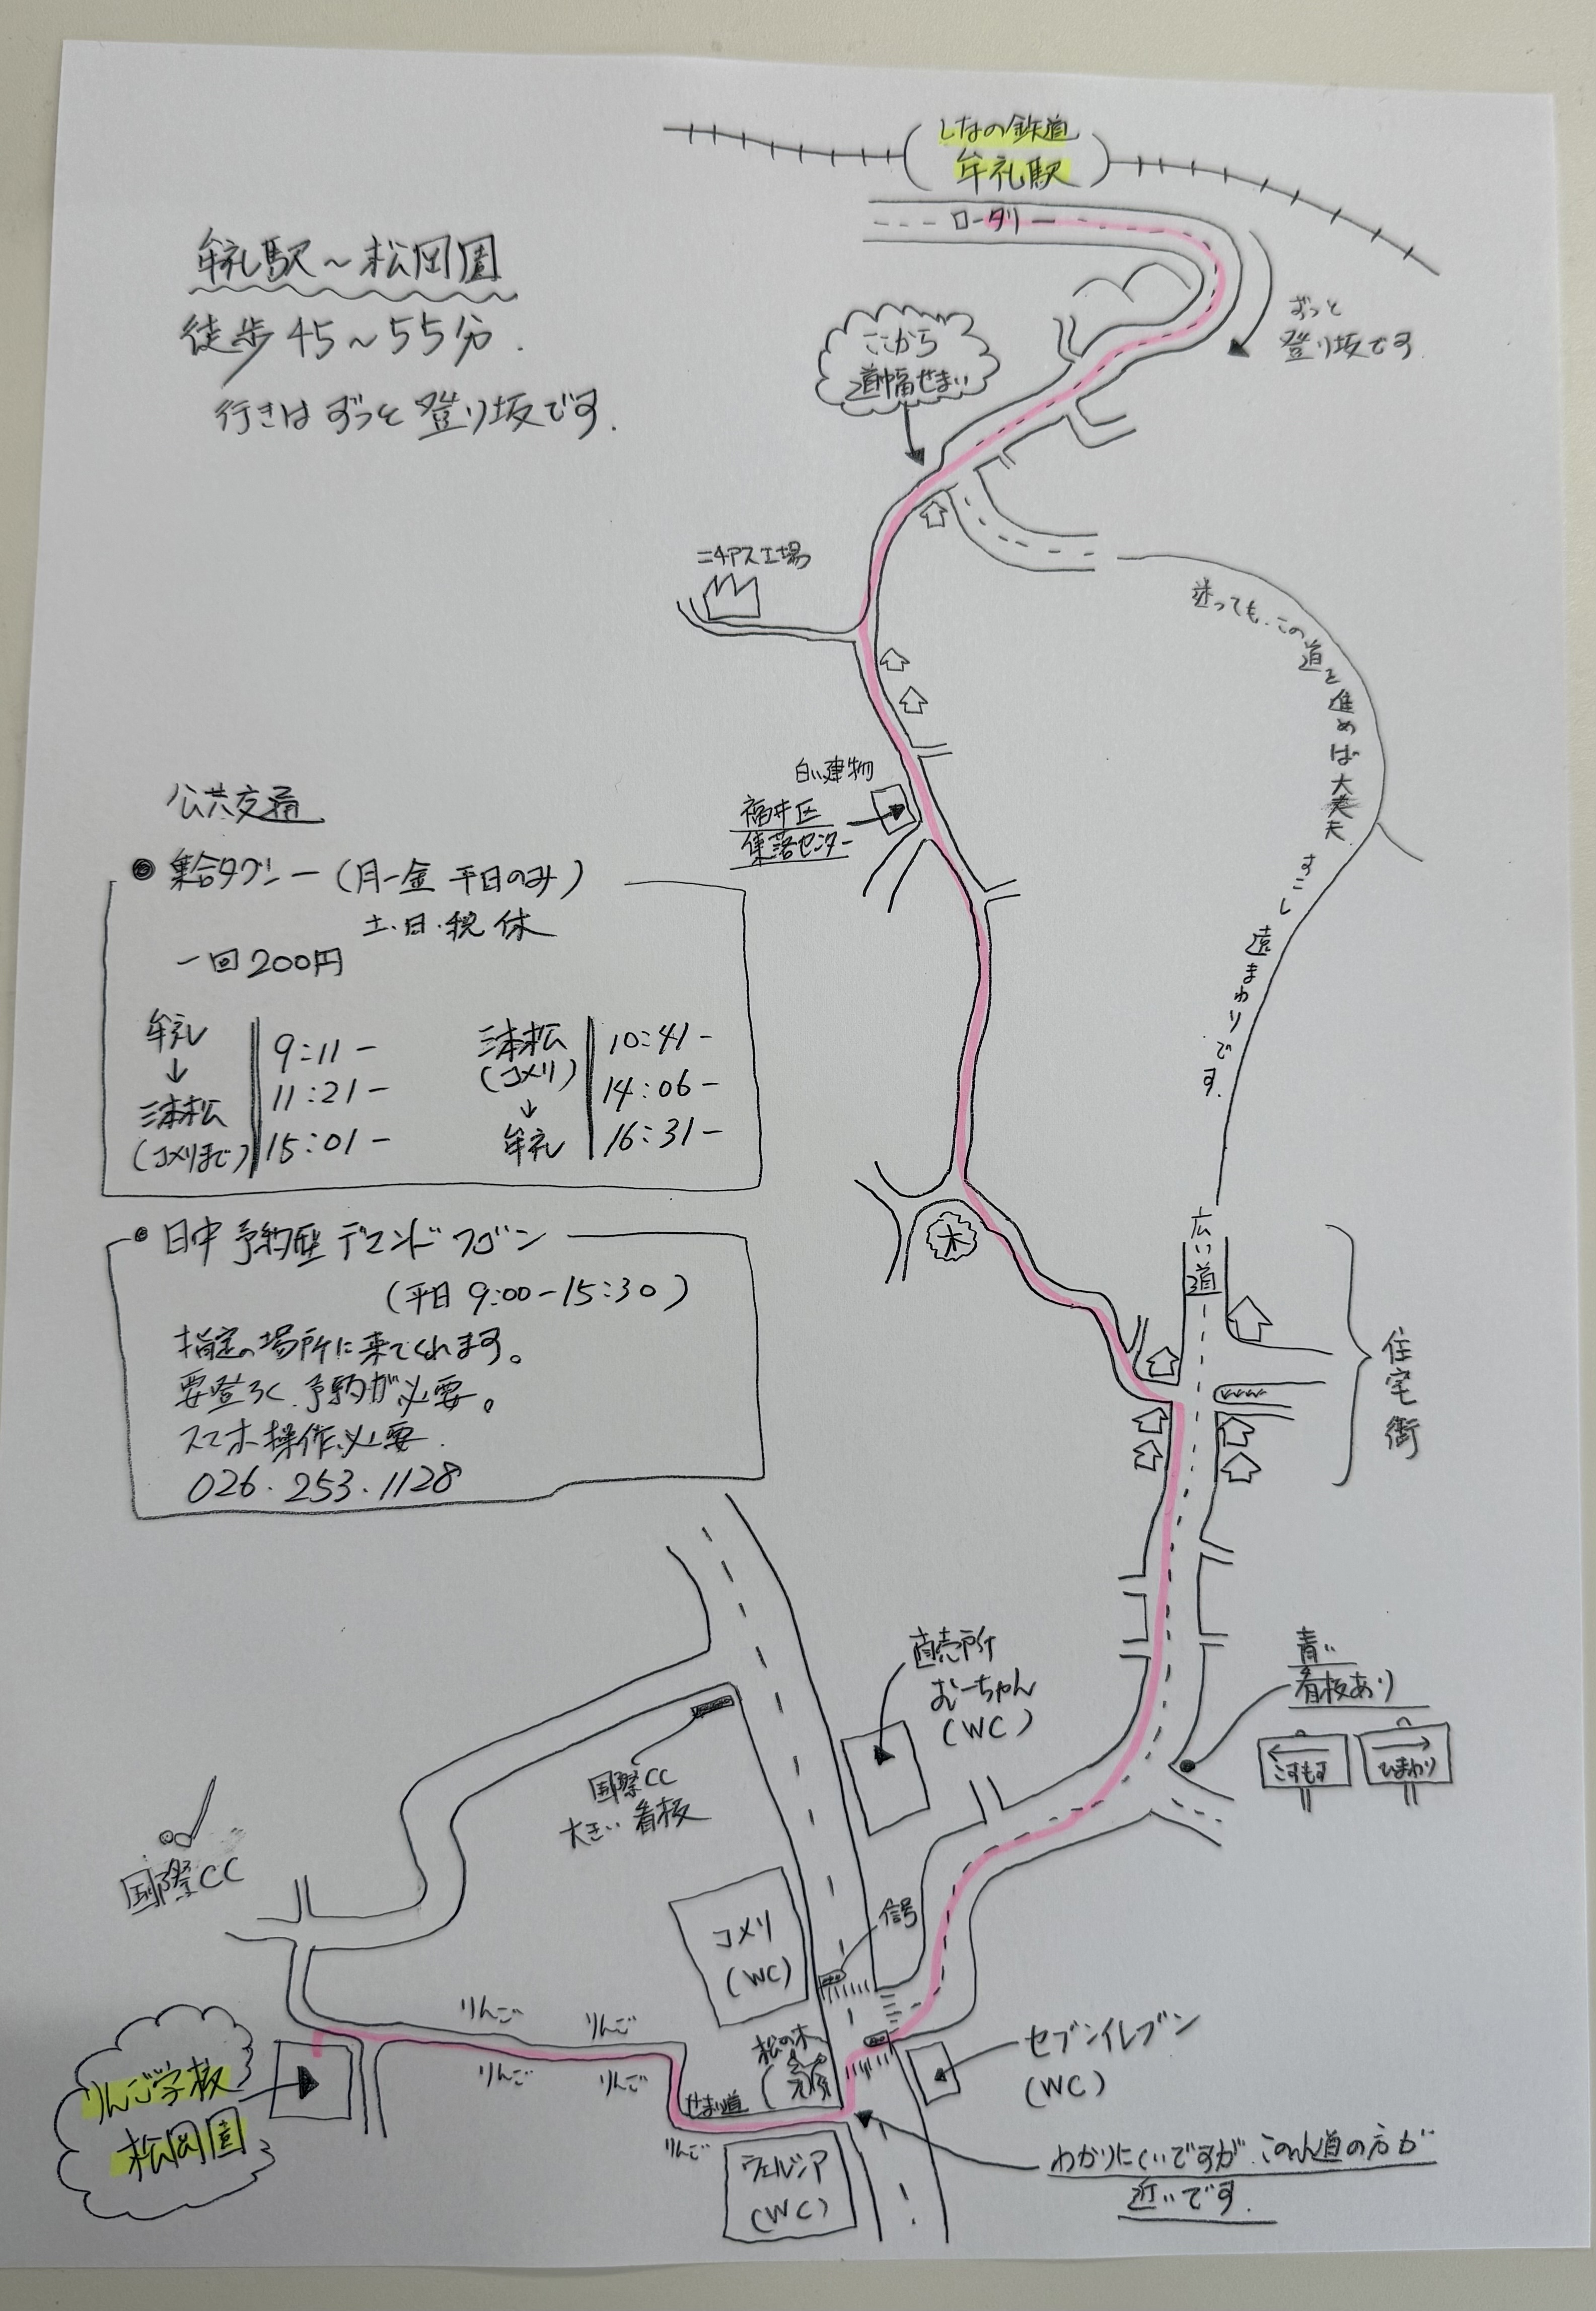 しなの鉄道
牟礼駅
ロータリー
牟礼駅～松岡園
徒歩45～55分.
行きはずっと登り坂です.
ずっと
登り坂です.
ここから
道幅せまい
ニチアス工場
迷っても、この道を進めば大丈夫
すこし遠まわりです.
白い建物
福井区
集落センター
公共交通
● 乗合タクシー(月-金 平日のみ)
土・日・税 休
一回200円
牟礼
↓
三本松
(コメリまで)
9:11-
11:21-
15:01-
三本松
(コメリ)
↓
牟礼
10:41-
14:06-
16:31-
● 日中 予約型 デマンドワゴン
(平日 9:00-15:30)
指定の場所に来てくれます。
要登ろく 予約が必要。
スマホ操作必要.
026.253.1128
木
広い道
住宅街
直売所
むーちゃん
(WC)
青い
看板あり
←
こすもす
→
ひまわり
国際CC
大きい看板
国際CC
コメリ
(WC)
信号
りんご
りんご
りんご
りんご
松の木
せまい道
りんご
セブンイレブン
(WC)
りんご学校
松岡園
ウエルシア
(WC)
わかりにくいですが、この道の方が
近いです.